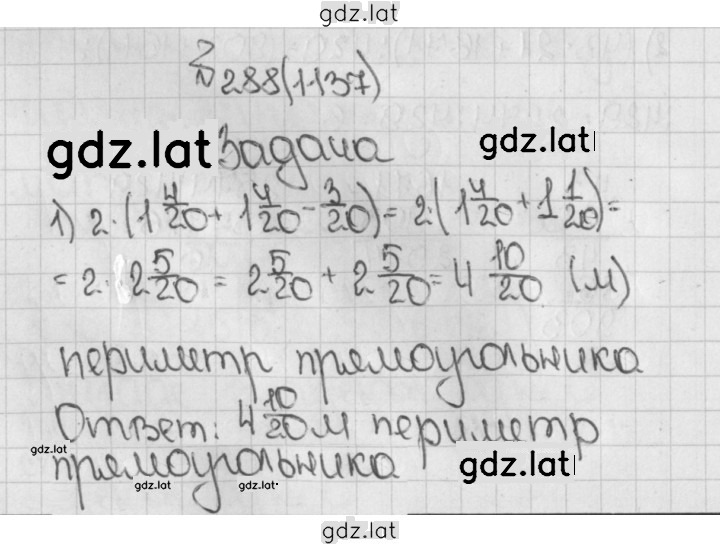 gdz.lat
№288(1137)
gdz.lat Задача gdz.lat
1) 2·(1 4/20 + 1 4/20 - 3/20) = 2·(1 4/20 + 1 1/20) =
= 2·2 5/20 = 2 5/20 + 2 5/20 = 4 10/20 (м)
периметр прямоугольника
Ответ: 4 10/20 м периметр
gdz.lat
прямоугольника gdz.lat
gdz.lat gdz.lat
gdz.lat